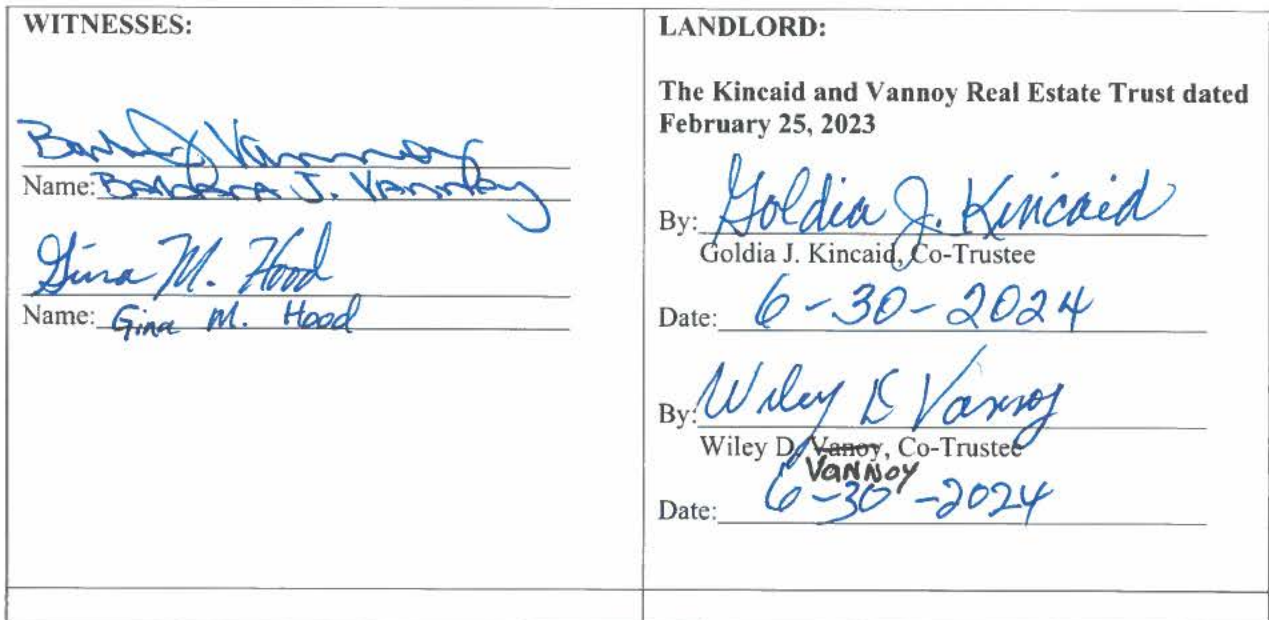 WITNESSES:
Barbara J Vannoy
Name: BARBARA J. VANNOY
Gina M. Hood
Name: Gina M. Hood
LANDLORD:
The Kincaid and Vannoy Real Estate Trust dated
February 25, 2023
By: Goldia J. Kincaid
Goldia J. Kincaid, Co-Trustee
Date: 6-30-2024
By: Wiley D Vannoy
Wiley D. Vanoy, Co-Trustee
VANNOY
Date: 6-30-2024